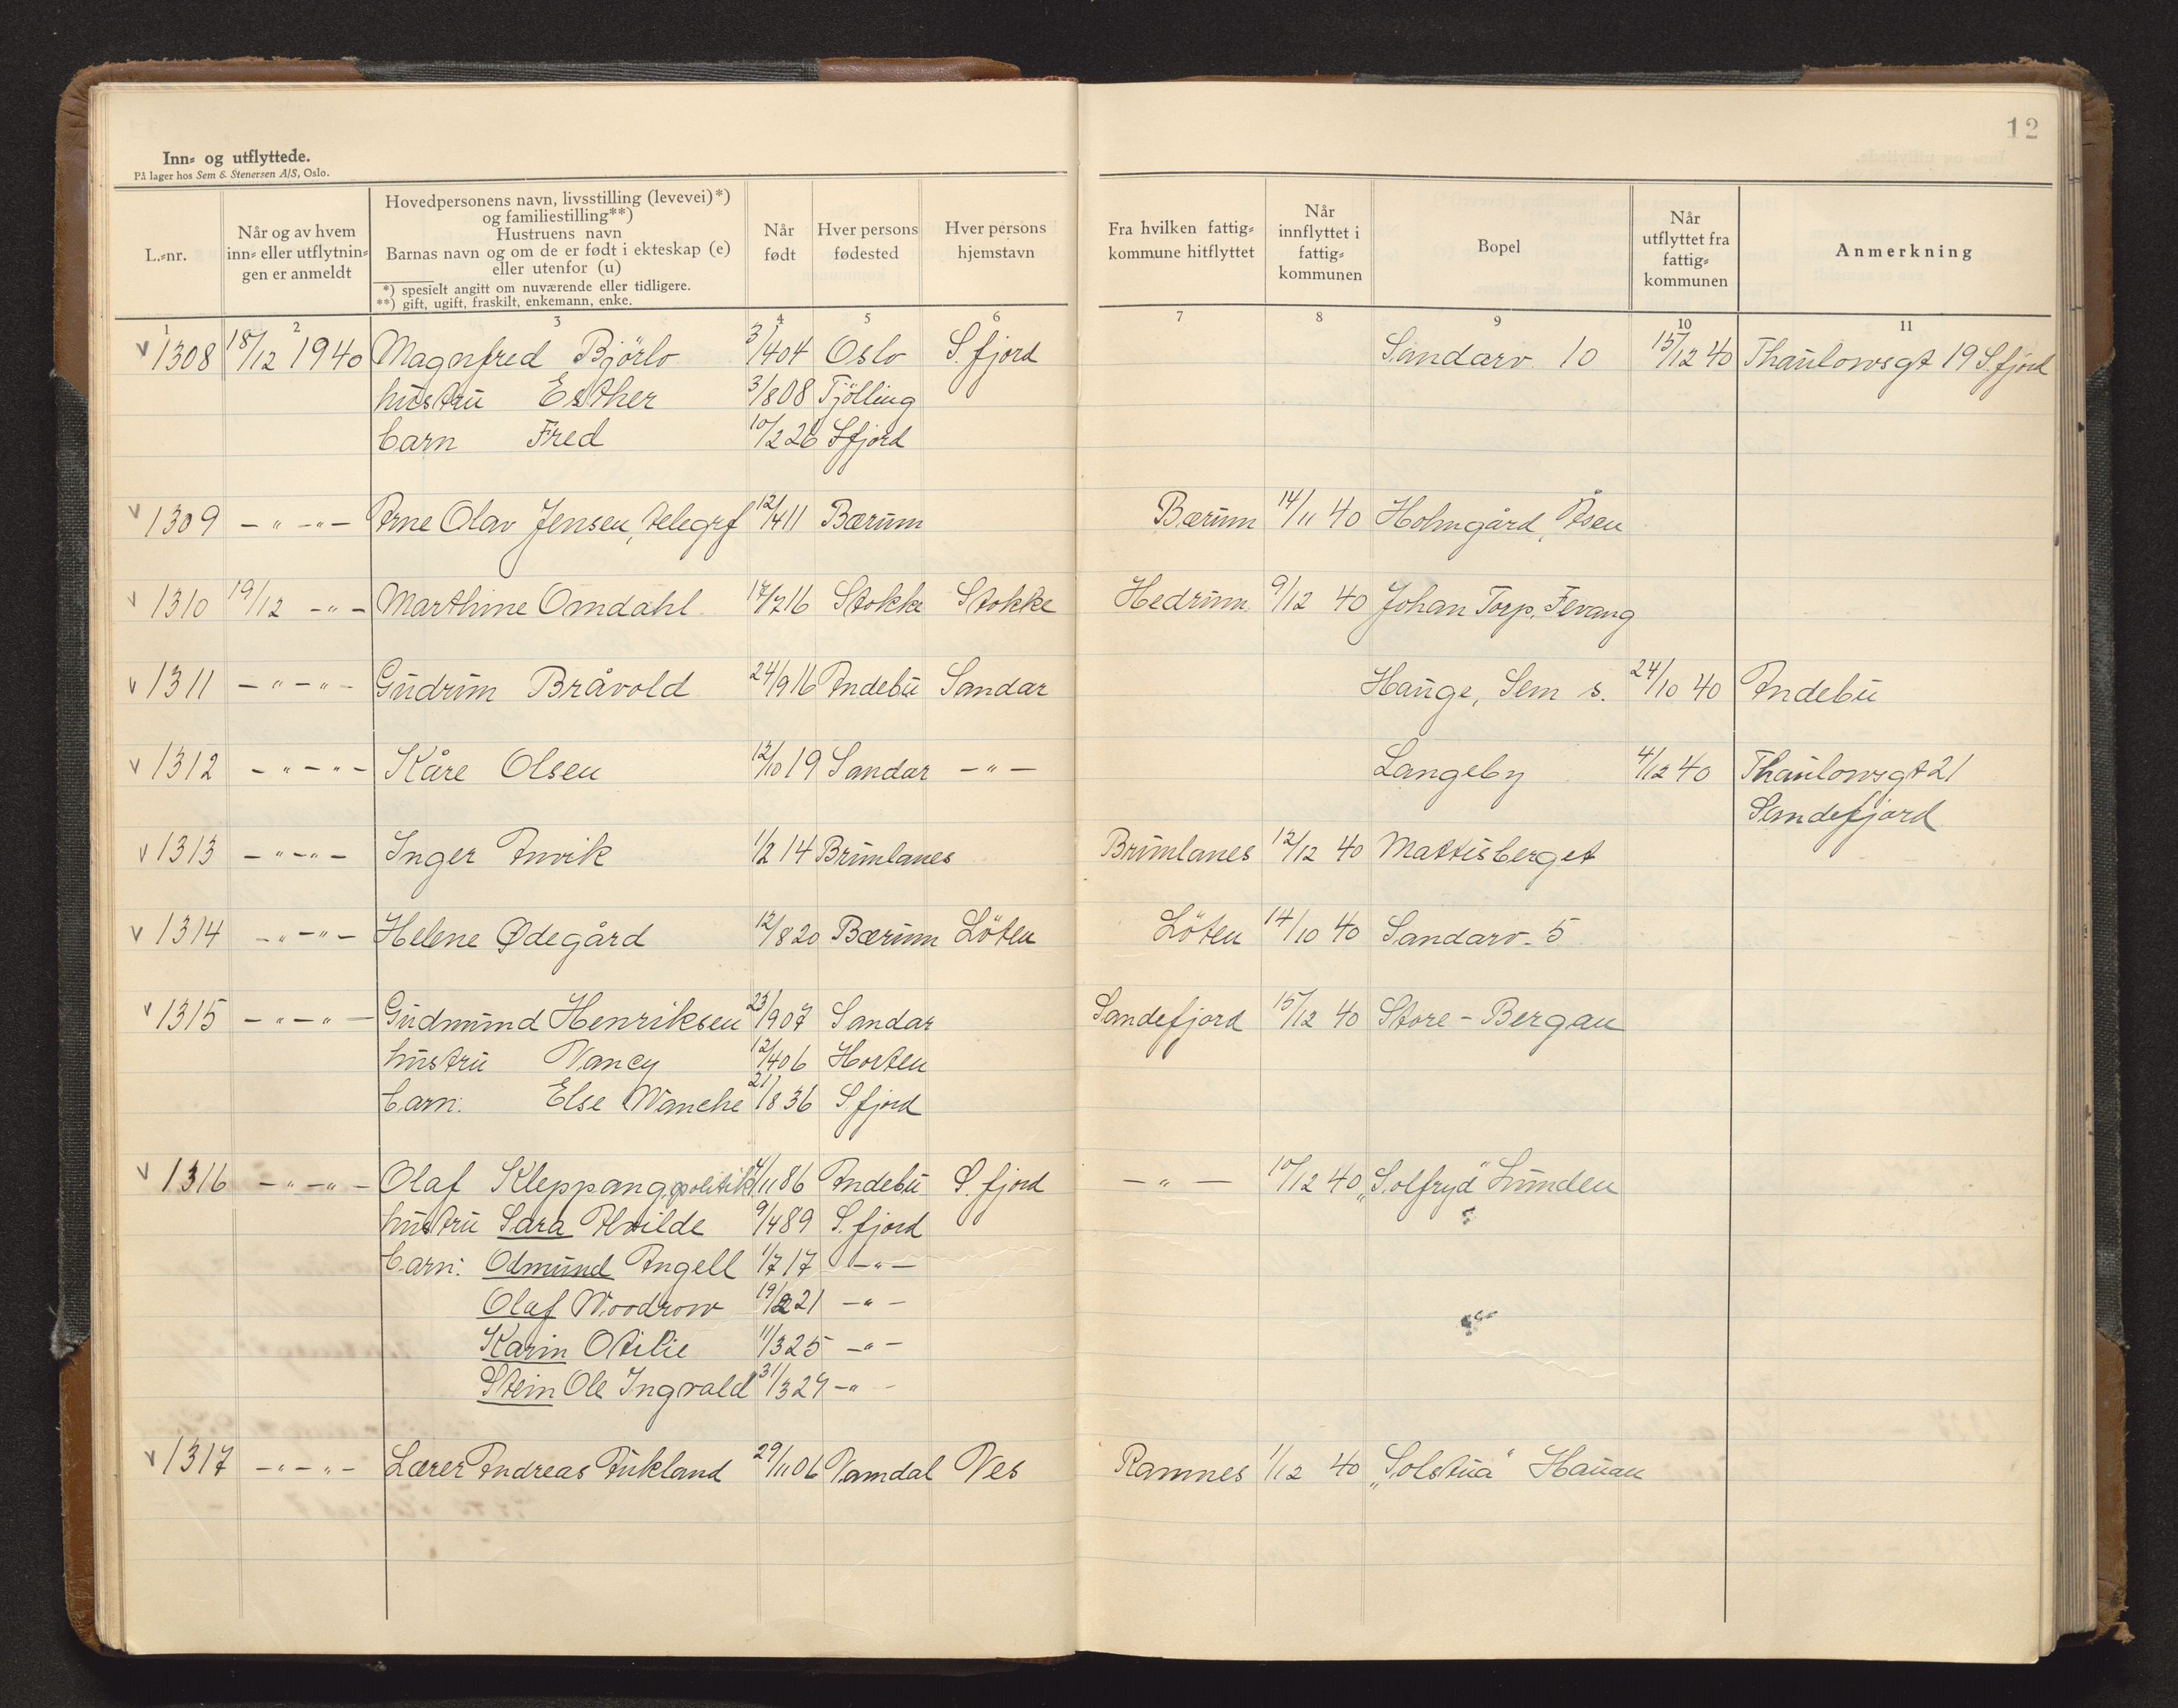 12
Inn= og utflyttede.
På lager hos Sem & Stenersen A/S, Oslo.
L.=nr.
Når og av hvem inn= eller utflytnin= gen er anmeldt
Hovedpersonens navn, livsstilling (levevei)*) og familiestilling**)
Hustruens navn
Barnas navn og om de er født i ekteskap (e) eller utenfor (u)
*) spesielt angitt om nuværende eller tidligere.
**) gift, ugift, fraskilt, enkemann, enke.
Når født
Hver persons fødested
Hver persons hjemstavn
Fra hvilken fattig= kommune hitflyttet
Når innflyttet i fattig= kommunen
Bopel
Når utflyttet fra fattig= kommunen
Anmerkning
1 2 3 4 5 6 7 8 9 10 11
v 1308 18/12 1940 Magnfred Bjørlo 3/4 04 Oslo S.fjord Sandarv. 10 15/12 40 Thaulowsgt 19 S.fjord
hustru Esther 3/8 08 Tjölling
barn Fred 10/2 26 Sfjord
v 1309 - " - " - Arne Olav Jensen, telegrf 12/4 11 Bærum Bærum 14/11 40 Holmgård, Åsen
v 1310 19/12 - " - Marthine Omdahl 17/2 16 Stokke Stokke Hedrum 9/12 40 Johan Torp, Fevang
v 1311 - " - " - Gudrun Bråvold 24/9 16 Andebu Sandar Hauge, Sem s. 24/10 40 Andebu
v 1312 - " - " - Kåre Olsen 12/10 19 Sandar - " - Langeby 4/12 40 Thaulowsgt 21
Sandefjord
v 1313 - " - " - Inger Anvik 1/2 14 Brunlanes Brunlanes 12/12 40 Mattisberget
v 1314 - " - " - Helene Ødegård 12/8 20 Bærum Löten Löten 14/10 40 Sandarv. 5
v 1315 - " - " - Gudmund Henriksen 23/9 07 Sandar Sandefjord 15/12 40 Store - Bergan
hustru Nancy 12/4 06 Horten
barn: Else Wanche 21/8 36 S.fjord
v 1316 - " - " - Olaf Kleppang, politik 4/11 86 Andebu S.fjord - " - 10/12 40 "Solfryd" Lunden
hustru Sara Alvilde 9/4 89 S.fjord
barn: Odmund Angell 1/7 17 - " -
Olaf Woodrow 19/2 21 - " -
Karin Otilie 11/3 25 - " -
Stein Ole Ingvald 31/3 29 - " -
v 1317 - " - " - Lærer Andreas Aukland 29/11 06 Vamdal Nes Ramnes 1/12 40 "Solstua" Hauan